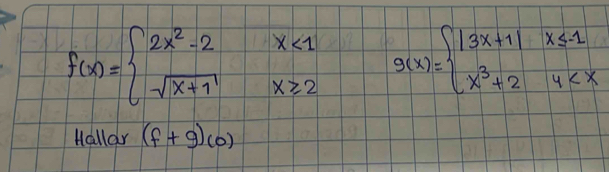 f(x) = { 2x² - 2 x < 1
√x+1 x ≥ 2
g(x) = { |3x+1| x ≤ -1
x³ + 2 4 < x
Hallar (f + g)(0)